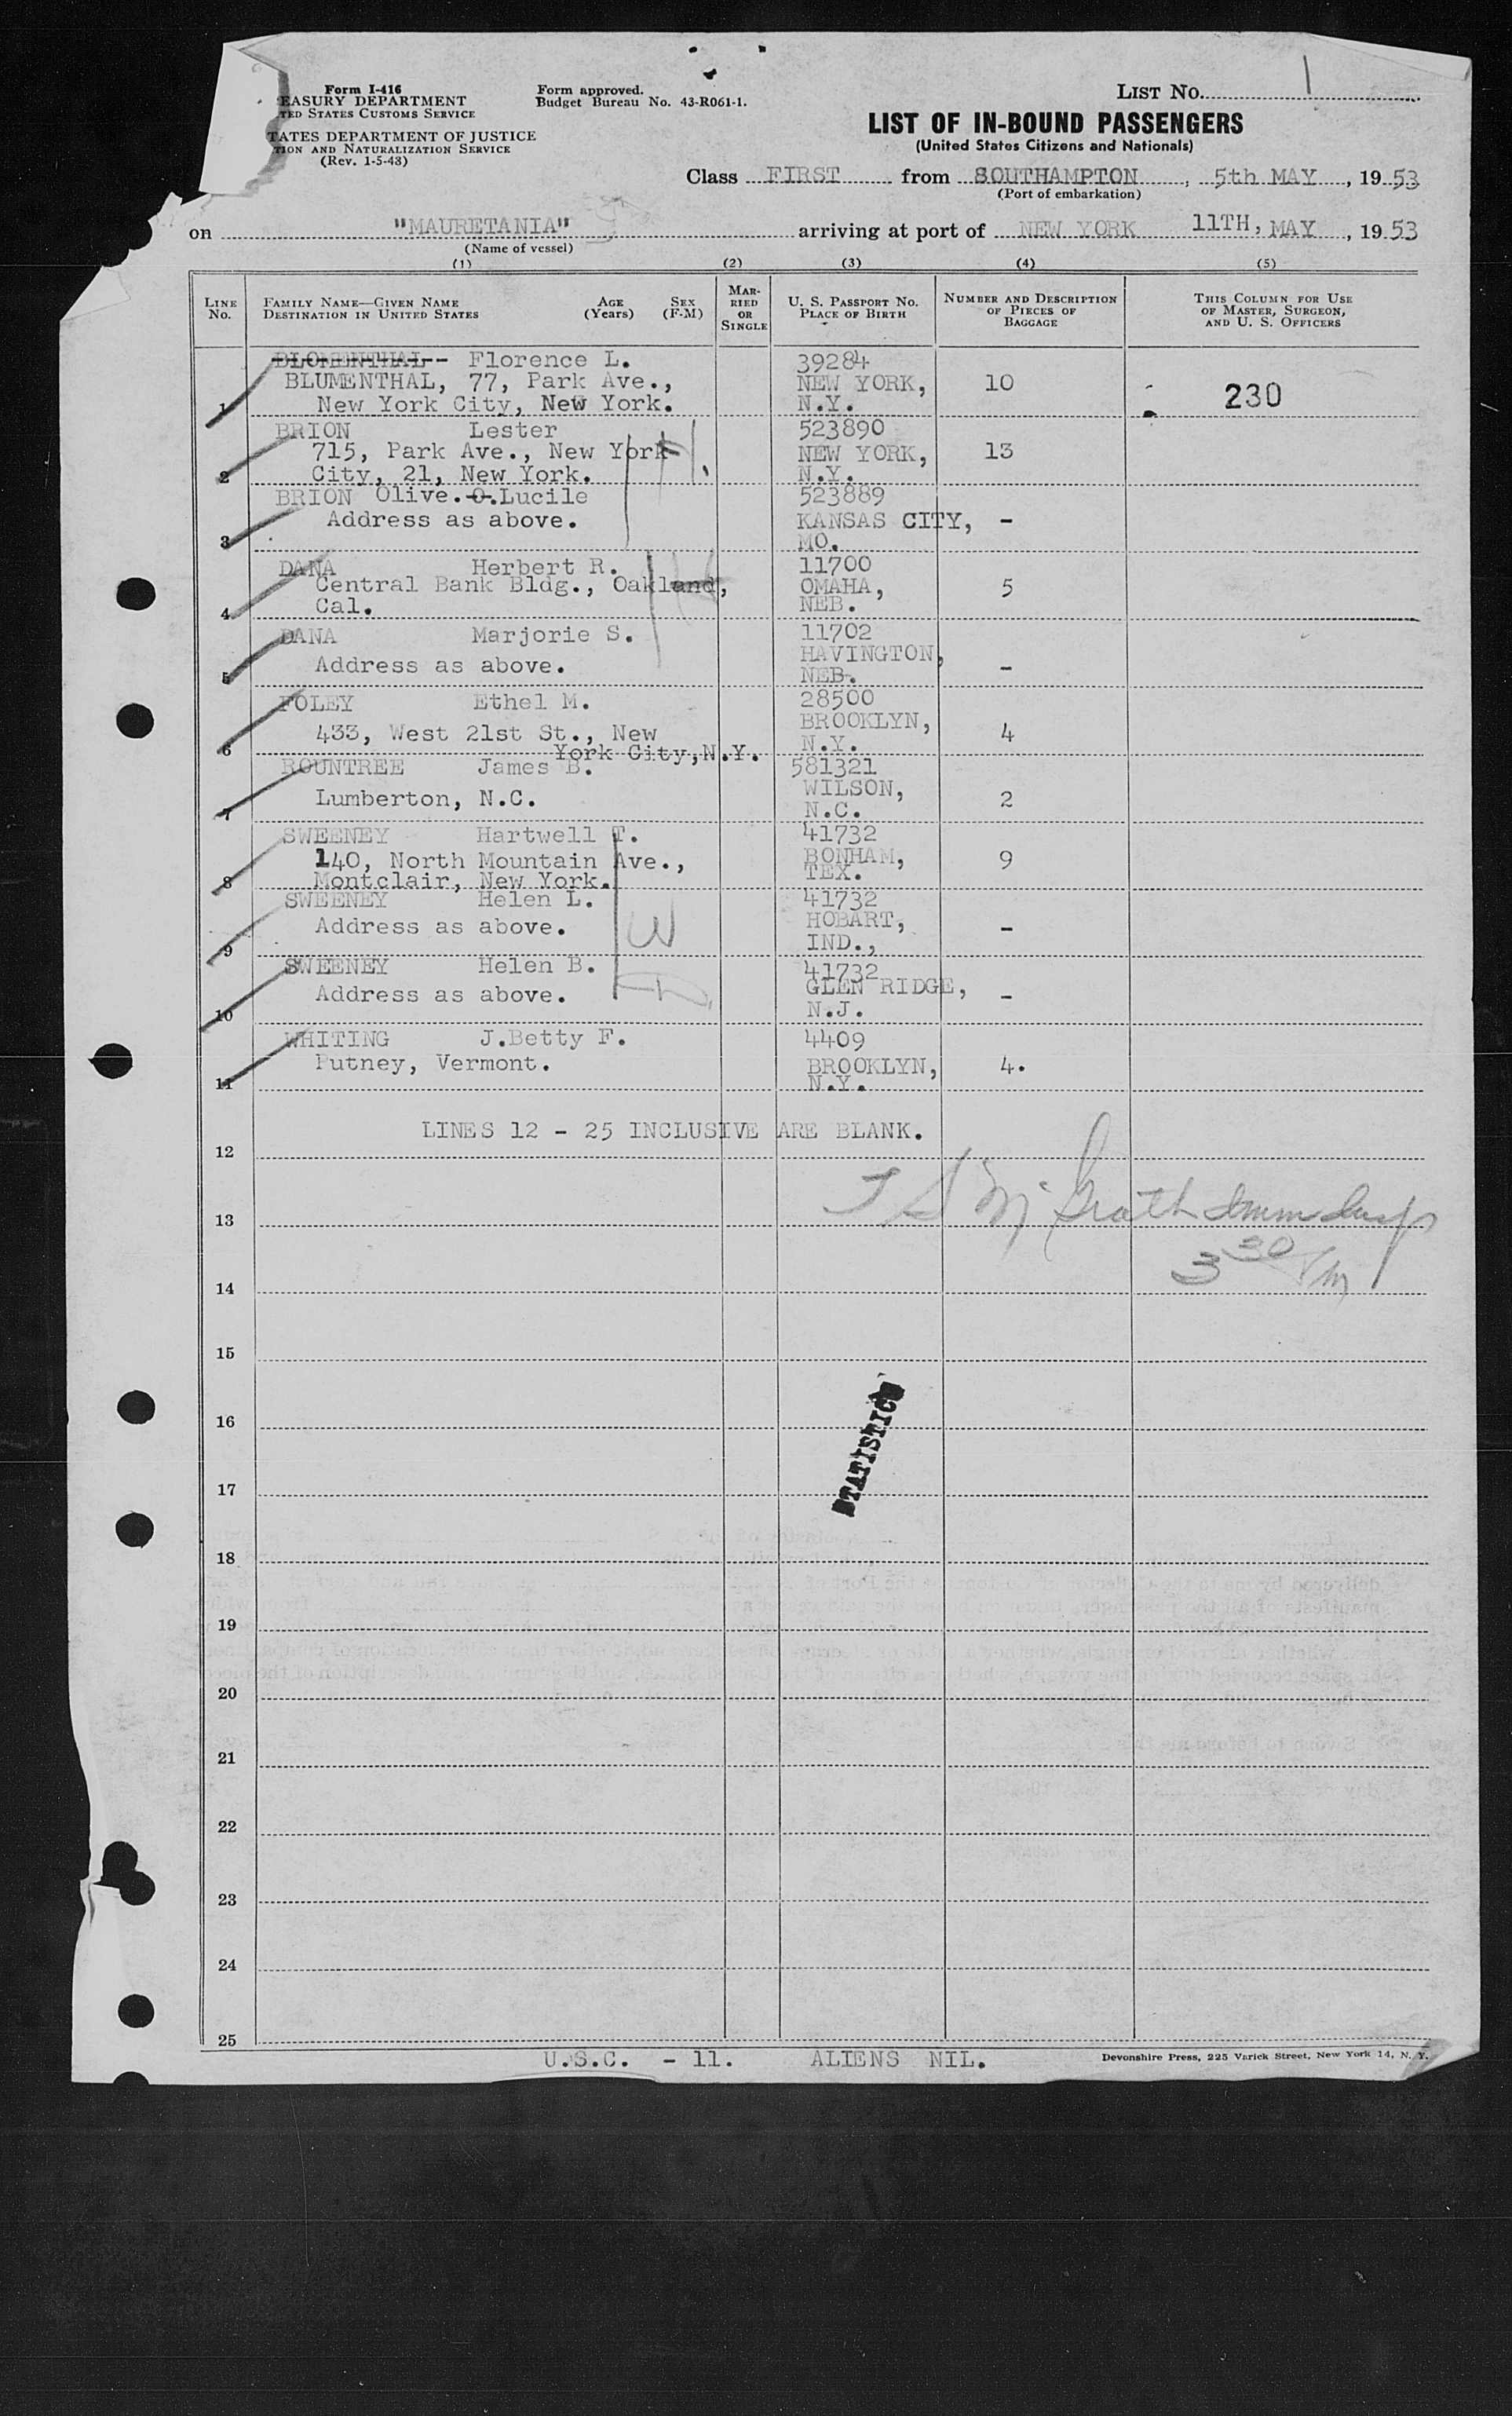 Form I-416
EASURY DEPARTMENT
TED STATES CUSTOMS SERVICE
TATES DEPARTMENT OF JUSTICE
TION AND NATURALIZATION SERVICE
(Rev. 1-5-48)
Form approved.
Budget Bureau No. 43-R061-1.
LIST NO. 1
LIST OF IN-BOUND PASSENGERS
(United States Citizens and Nationals)
Class FIRST from SOUTHAMPTON, 5th MAY, 1953
(Port of embarkation)
on "MAURETANIA" arriving at port of NEW YORK 11TH, MAY, 1953
(Name of vessel)
(1) (2) (3) (4) (5)
LINE NO.
FAMILY NAME—GIVEN NAME
DESTINATION IN UNITED STATES
AGE (Years)
SEX (F-M)
MARRIED OR SINGLE
U. S. PASSPORT NO.
PLACE OF BIRTH
NUMBER AND DESCRIPTION OF PIECES OF BAGGAGE
THIS COLUMN FOR USE OF MASTER, SURGEON, AND U. S. OFFICERS
BLOMENTHAL-- Florence L. 39284
BLUMENTHAL, 77, Park Ave., NEW YORK, 10 230
1 New York City, New York. N.Y.
BRION Lester 523890
715, Park Ave., New York NEW YORK, 13
2 City, 21, New York. N.Y.
BRION Olive. O. Lucile 523889
Address as above. KANSAS CITY, -
3 MO.
DANA Herbert R. 11700
Central Bank Bldg., Oakland, OMAHA, 5
4 Cal. NEB.
DANA Marjorie S. 11702
Address as above. HAVINGTON, -
5 NEB.
FOLEY Ethel M. 28500
433, West 21st St., New BROOKLYN, 4
6 York City, N.Y. N.Y.
ROUNTREE James B. 581321
Lumberton, N.C. WILSON, 2
7 N.C.
SWEENEY Hartwell T. 41732
140, North Mountain Ave., BONHAM, 9
8 Montclair, New York. TEX.
SWEENEY Helen L. 41732
Address as above. HOBART, -
9 IND.,
SWEENEY Helen B. 41732
Address as above. GLEN RIDGE, -
10 N.J.
WHITING J.Betty F. 4409
Putney, Vermont. BROOKLYN, 4.
11 N.Y.
LINES 12 - 25 INCLUSIVE ARE BLANK.
12
13
3 30 PM
14
15
16
STATISTICS
17
18
19
20
21
22
23
24
25
U.S.C. - 11. ALIENS NIL.
Devonshire Press, 225 Varick Street, New York 14, N. Y.